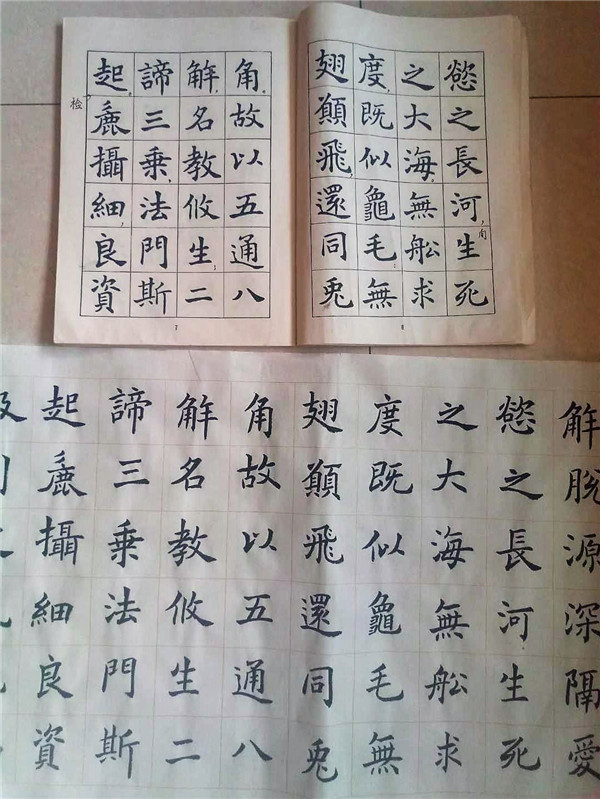 慾之長河,生死
之大海,無舩求
度,既似龜毛;無
翅願飛,還同兔
角,故以五通八
解,名教攸生;二
諦三乘,法門斯
起,麁攝細,良資
检
7
8
解脱源深隔愛
慾之長河生死
之大海無舩求
度既似龜毛無
翅願飛還同兔
角故以五通八
解名教攸生二
諦三乘法門斯
起麁攝細良資